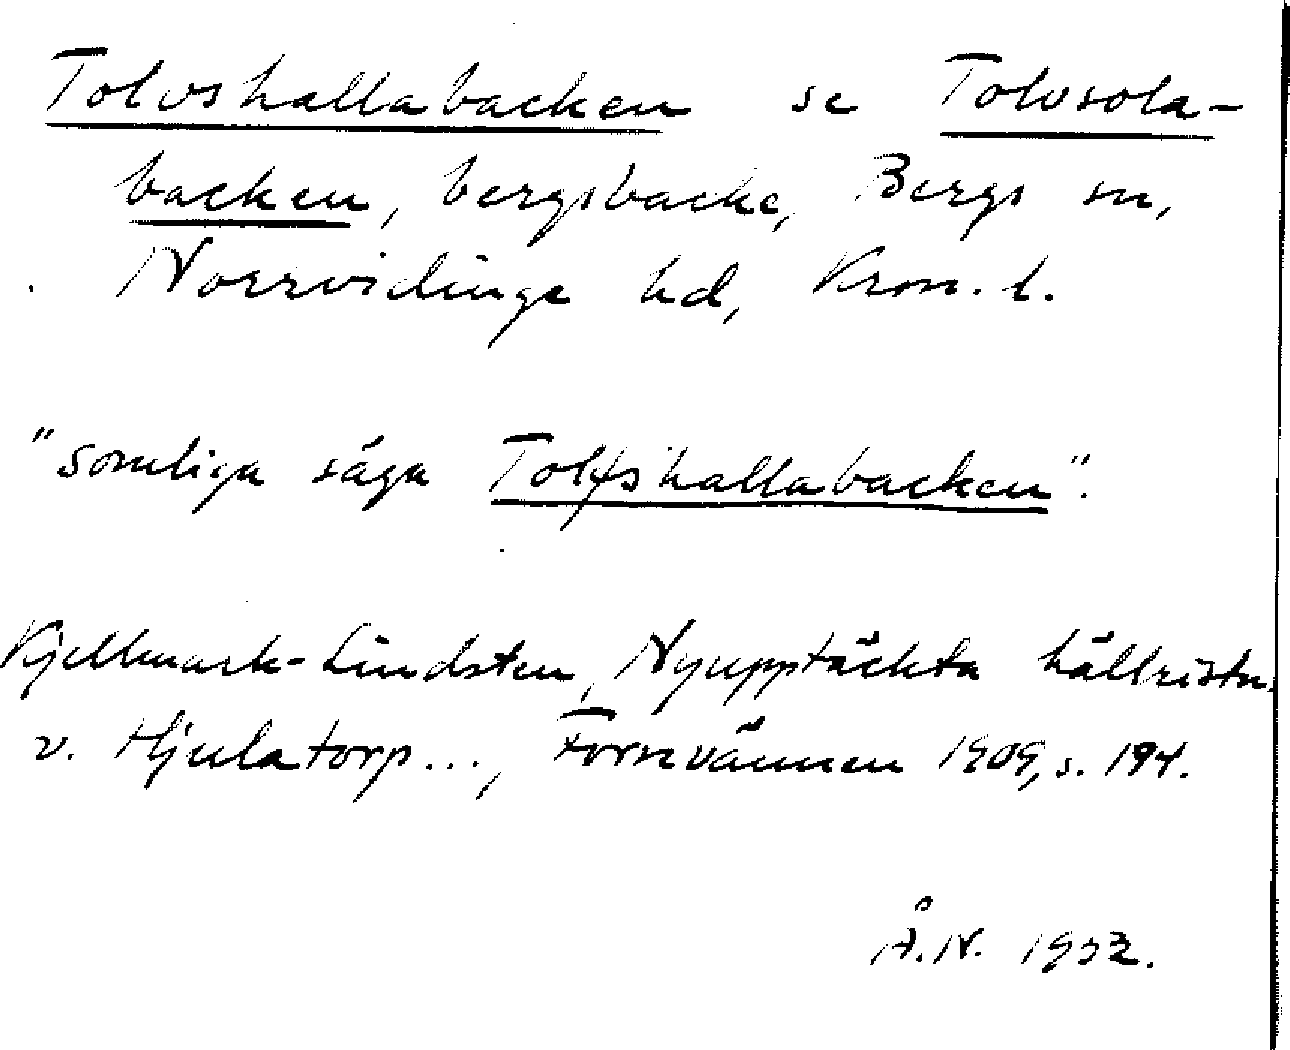 Tolvshallabacken se Tolvsola-
backen, bergsbacke, Bergs sn,
Norrvidinge hd, Kron. l.
"somliga säga Tolfshallabacken".
Kjellmark-Lindsten, Nyupptäckta hällristn.
v. Hjulatorp..., Fornvännen 1909, s. 194.
Å.N. 1932.